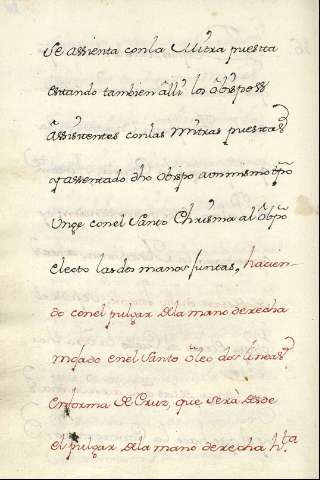 Se assienta con la Mitra puesta
estando tambien alli los Obispos
assistentes con las mitras puestas
y assentado dho obispo a un mismo tpõ
Unge con el Santo Chrisma al Obpõ
electo las dos manos juntas, hacien-
do con el pulgar de la mano derecha
mojado en el Santo Oleo dos lineas
en forma de Cruz, que serà desde
el pulgar de la mano derecha h.ta